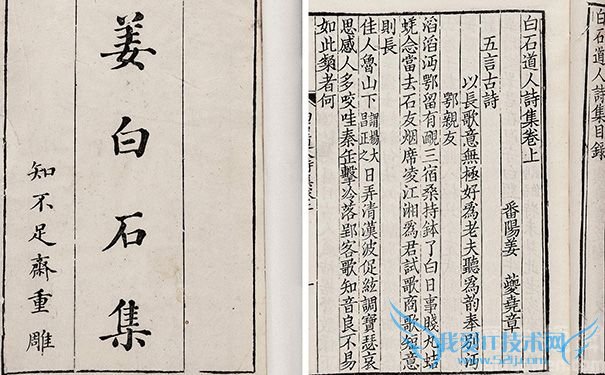 姜白石集
知不足齋重雕
白石道人詩集目録
白石道人詩集卷上
番陽姜 夔堯章
五言古詩
以長歌意無極好為老夫聽為韵奉别沔
鄂親友
滔滔沔鄂留有靦三宿桑持鉢了白日事賤丸蛣
蜣念當去石友烟席凌江湘為君試歌商歌短意
則長
佳人魯山下謂楊大昌正之日弄清漢波促絃調寶瑟哀
思感人多咬哇秦缶擊冷落郢客歌知音良不易
如此類者何
我爱IT技术网